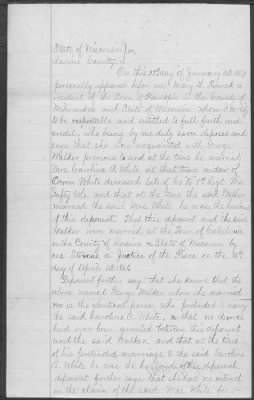 State of Wisconsin } ss
Racine County }
On this 25th day of January AD 1869
personally appeared before me Mary A. Rusack a
resident of the Town of Franklin in the County of
Milwaukee and State of Wisconsin whom I certify
to be respectable and entitled to full faith and
credit, who being by me duly sworn deposes and
says that she was acquainted with George
Walker previous to and at the time he married
Mrs Caroline A. White at that time widow of
Orson White deceased late of Co 8th Regt
and that at the time the said Walker
married the said Mrs White he was the husband
of this deponent. That this deponent and the said
Walker were married at the Town of Caledonia
in the County of Racine & State of Wisconsin by
one Stevens, a Justice of the Peace on the 10th
day of April AD 1846.
Deponent further says that she knows that the
above named George Walker whom she married
is the identical person who pretended to marry
the said Caroline A. White, & that no divorce
had ever been granted between this deponent
and the said Walker, and that at the time
of his pretended marriage to the said Caroline
A. White he was the husband of this deponent
deponent further says that she has no interest
in the claim of the said Mrs White for